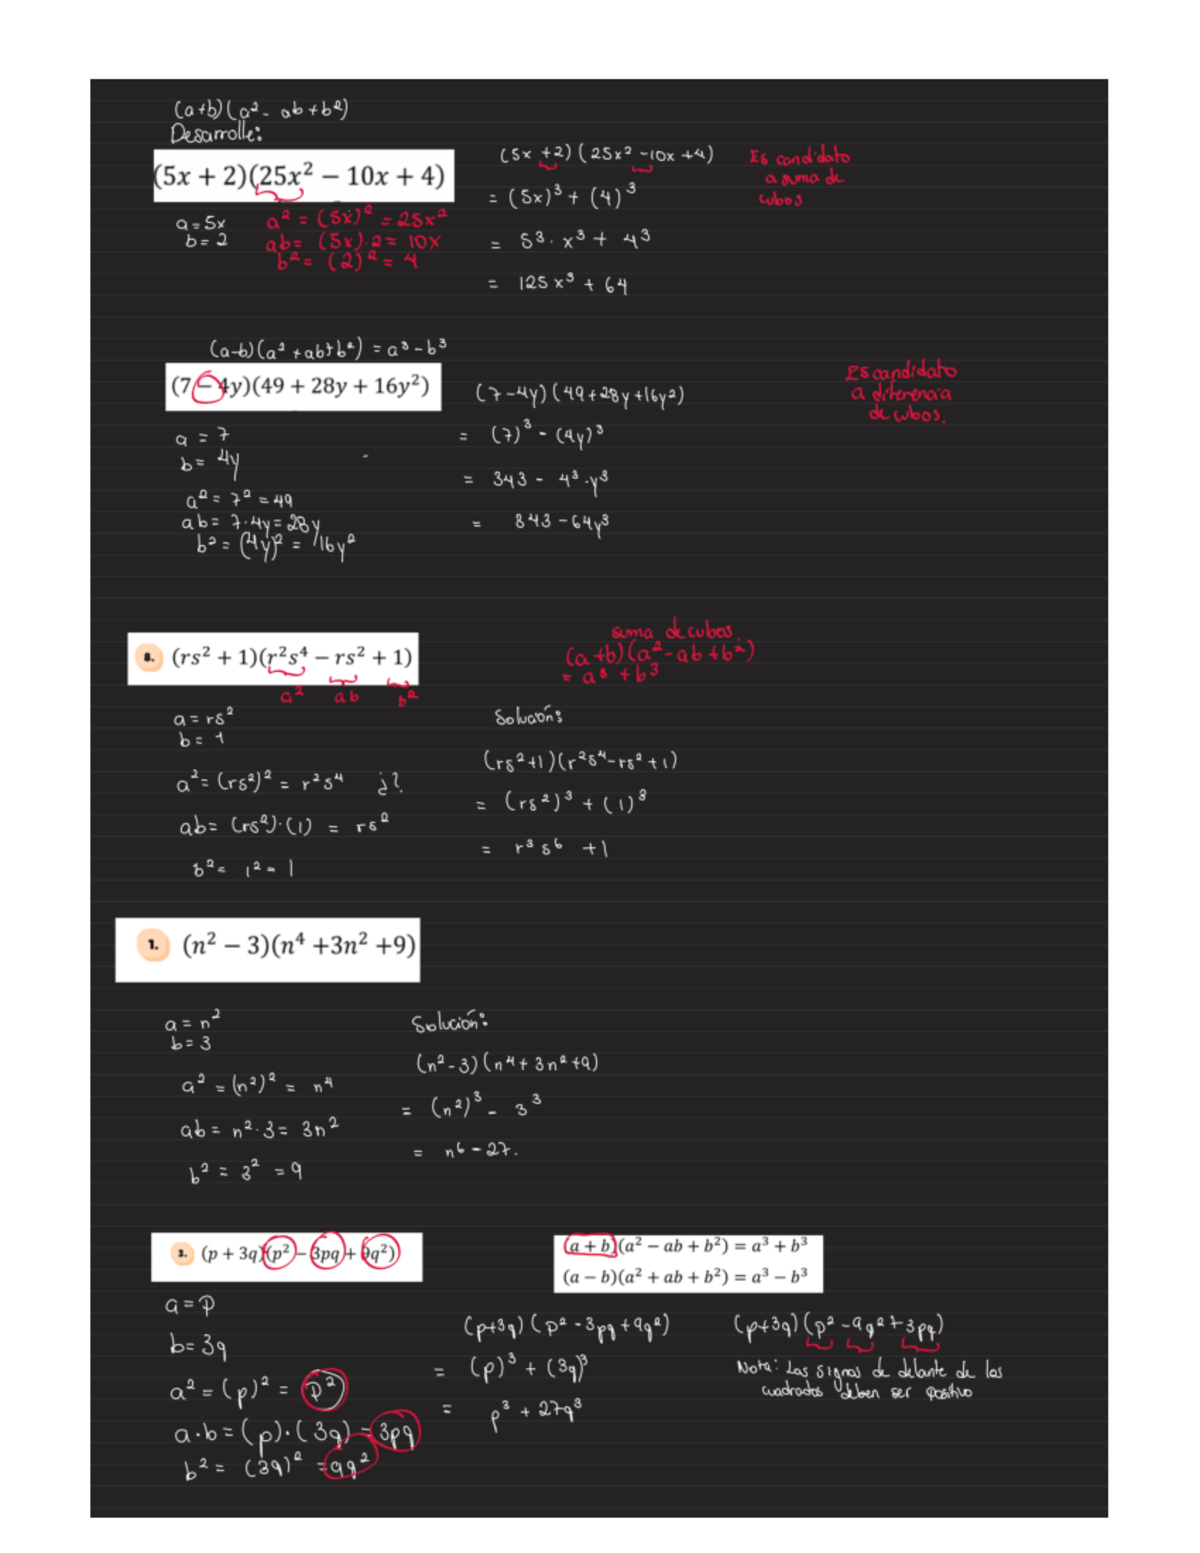 (a+b)(a² - ab + b²)
Desarrolle:
(5x + 2)(25x² − 10x + 4)
a = 5x
b = 2
a² = (5x)² = 25x²
ab = (5x)·2 = 10x
b² = (2)² = 4
(5x +2)(25x² -10x +4)
= (5x)³ + (4)³
= 5³ · x³ + 4³
= 125x³ + 64
Es candidato
a suma de
cubos
(a-b)(a² + ab + b²) = a³ - b³
(7 − 4y)(49 + 28y + 16y²)
a = 7
b = 4y
a² = 7² = 49
ab = 7·4y = 28y
b² = (4y)² = 16y²
(7-4y)(49+28y+16y²)
= (7)³ - (4y)³
= 343 - 4³·y³
= 343 - 64y³
Es candidato
a diferencia
de cubos.
8. (rs² + 1)(r²s⁴ − rs² + 1)
a² ab b²
suma de cubos.
(a+b)(a² - ab + b²)
= a³ + b³
a = rs²
b = 1
a² = (rs²)² = r²s⁴ ¿?
ab = (rs²)·(1) = rs²
b² = 1² = 1
Solución:
(rs²+1)(r²s⁴-rs²+1)
= (rs²)³ + (1)³
= r³s⁶ + 1
1. (n² − 3)(n⁴ +3n² +9)
a = n²
b = 3
a² = (n²)² = n⁴
ab = n²·3 = 3n²
b² = 3² = 9
Solución:
(n²-3)(n⁴+3n²+9)
= (n²)³ - 3³
= n⁶ - 27.
3. (p + 3q)(p² − 3pq + 9q²)
(a + b)(a² − ab + b²) = a³ + b³
(a − b)(a² + ab + b²) = a³ − b³
a = p
b = 3q
a² = (p)² = p²
a·b = (p)·(3q) = 3pq
b² = (3q)² = 9q²
(p+3q)(p² - 3pq + 9q²)
= (p)³ + (3q)³
= p³ + 27q³
(p+3q)(p² - 9q² + 3pq)
Nota: Los signos de delante de los
cuadrados deben ser positivo